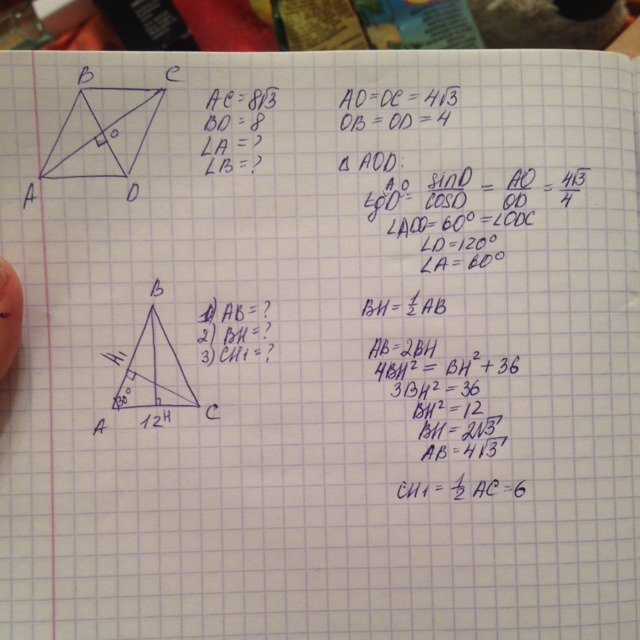 B C
O
A D
AC = 8√3
BD = 8
∠A = ?
∠B = ?
AO = OC = 4√3
OB = OD = 4
△ AOD:
sinD / cosD = AO / OD = 4√3 / 4
∠ADO = 60° = ∠ODC
∠D = 120°
∠A = 60°
B
H1
30°
A 12 H C
1) AB = ?
2) BH = ?
3) CH1 = ?
BH = 1/2 AB
AB = 2BH
4BH² = BH² + 36
3BH² = 36
BH² = 12
BH = 2√3
AB = 4√3
CH1 = 1/2 AC = 6